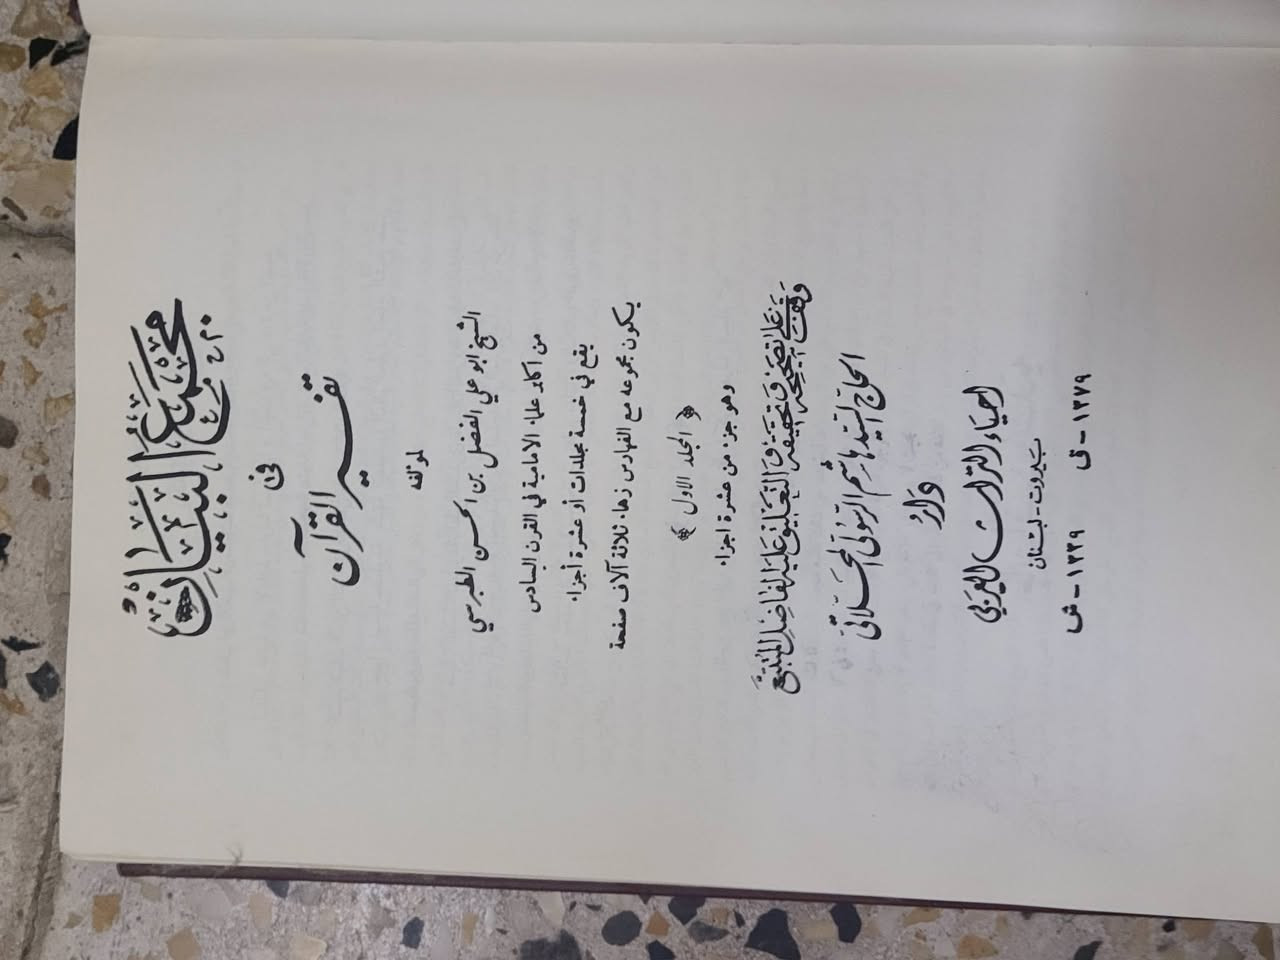 مجمع البيان
في
تفسير القرآن
لمؤلفه
الشيخ ابو علي الفضل بن الحسن الطبرسي
من أكابر علماء الامامية في القرن السادس
يقع في خمسة مجلدات أو عشرة أجزاء
يكون مجموعه مع الفهارس زهاء ثلاثة آلاف صفحة
﴿ المجلد الاول ﴾
وهو جزء من عشرة اجزاء
وقف على تصحيحه وتحقيقه والتعليق عليه الفاضل المتتبع
الحاج السيد هاشم الرسولي المحلاتي
دار
احياء التراث العربي
بيروت - لبنان
١٣٧٩ - ق ١٣٣٩ - ش